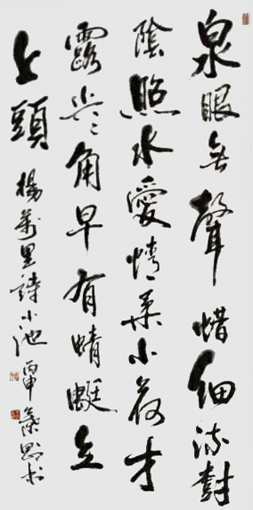 泉眼無聲惜細流樹
陰照水愛晴柔小荷才
露尖尖角早有蜻蜓立
上頭 楊萬里詩小池 丙申